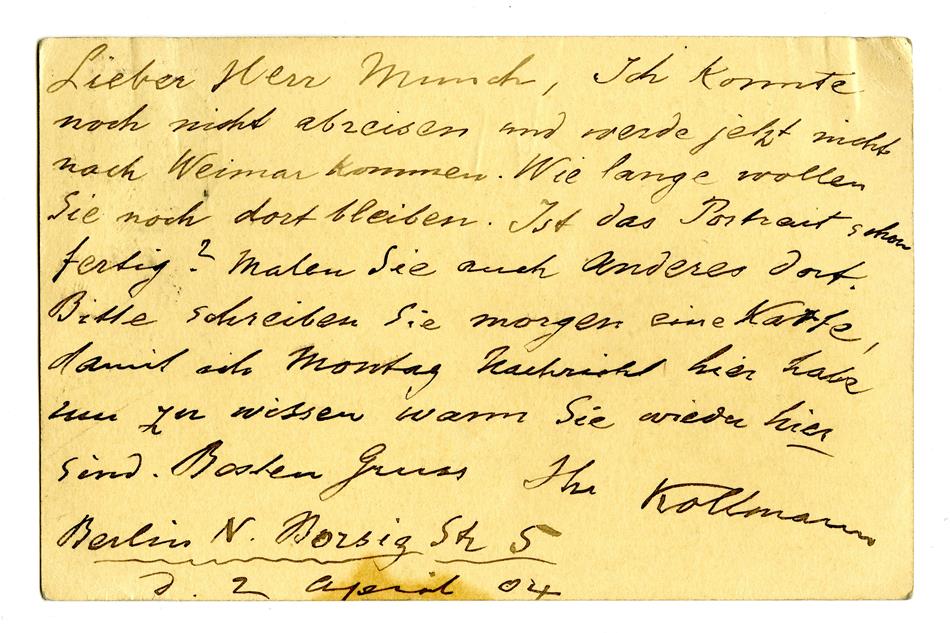 Lieber Herr Munch, Ich konnte
noch nicht abreisen und werde jetzt nicht
nach Weimar kommen. Wie lange wollen
Sie noch dort bleiben. Ist das Portrait schon
fertig? Malen Sie auch Anderes dort.
Bitte schreiben Sie morgen eine Karte,
damit ich Montag Nachricht hier habe
um zu wissen wann Sie wieder hier
sind. Besten Gruss Ihr Kollmann
Berlin N. Borsig Str 5
d. 2 April 04